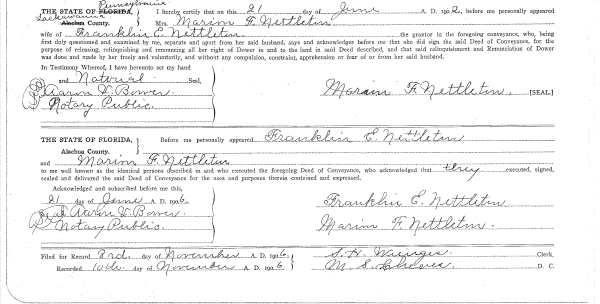 Pennsylvania
THE STATE OF FLORIDA, } I hereby certify that on this 21 day of June A. D. 1902, before me personally appeared
Lackawanna
Alachua County. Mrs. Marion F. Nettleton
wife of Franklin E. Nettleton the grantor in the foregoing conveyance, who, being
first duly questioned and examined by me, separate and apart from her said husband, says and acknowledges before me that she did sign the said Deed of Conveyance, for the
purpose of releasing, relinquishing and renouncing all her right of Dower in and to the land in said Deed described, and that said relinquishment and Renunciation of Dower
was done and made by her freely and voluntarily, and without any compulsion, constraint, apprehension or fear of or from her said husband.
In Testimony Whereof, I have hereunto set my hand
and Notorial Seal,
Aaron V. Bower Marion F. Nettleton. [SEAL.]
Notary Public.
THE STATE OF FLORIDA, } Before me personally appeared Franklin E. Nettleton
Alachua County.
and Marion F. Nettleton
to me well known as the identical persons described in and who executed the foregoing Deed of Conveyance, who acknowledged that they executed, signed,
sealed and delivered the said Deed of Conveyance for the uses and purposes therein contained and expressed.
Acknowledged and subscribed before me this,
21 day of June A. D. 1906 Franklin E. Nettleton
Seal Aaron V. Bower Marion F. Nettleton
Notary Public.
Filed for Record 3rd. day of November A. D. 1906 S. H. Wienges Clerk.
Recorded 10th day of November A. D. 1906 M. S. D. C.